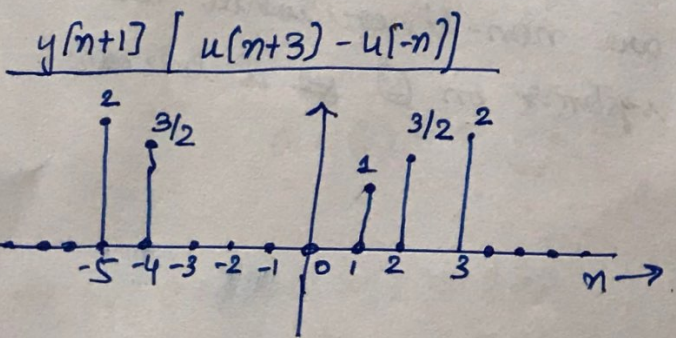 y[n+1] [ u(n+3) - u[-n)]
2
3/2
1
3/2
2
-5 -4 -3 -2 -1 0 1 2 3 n →